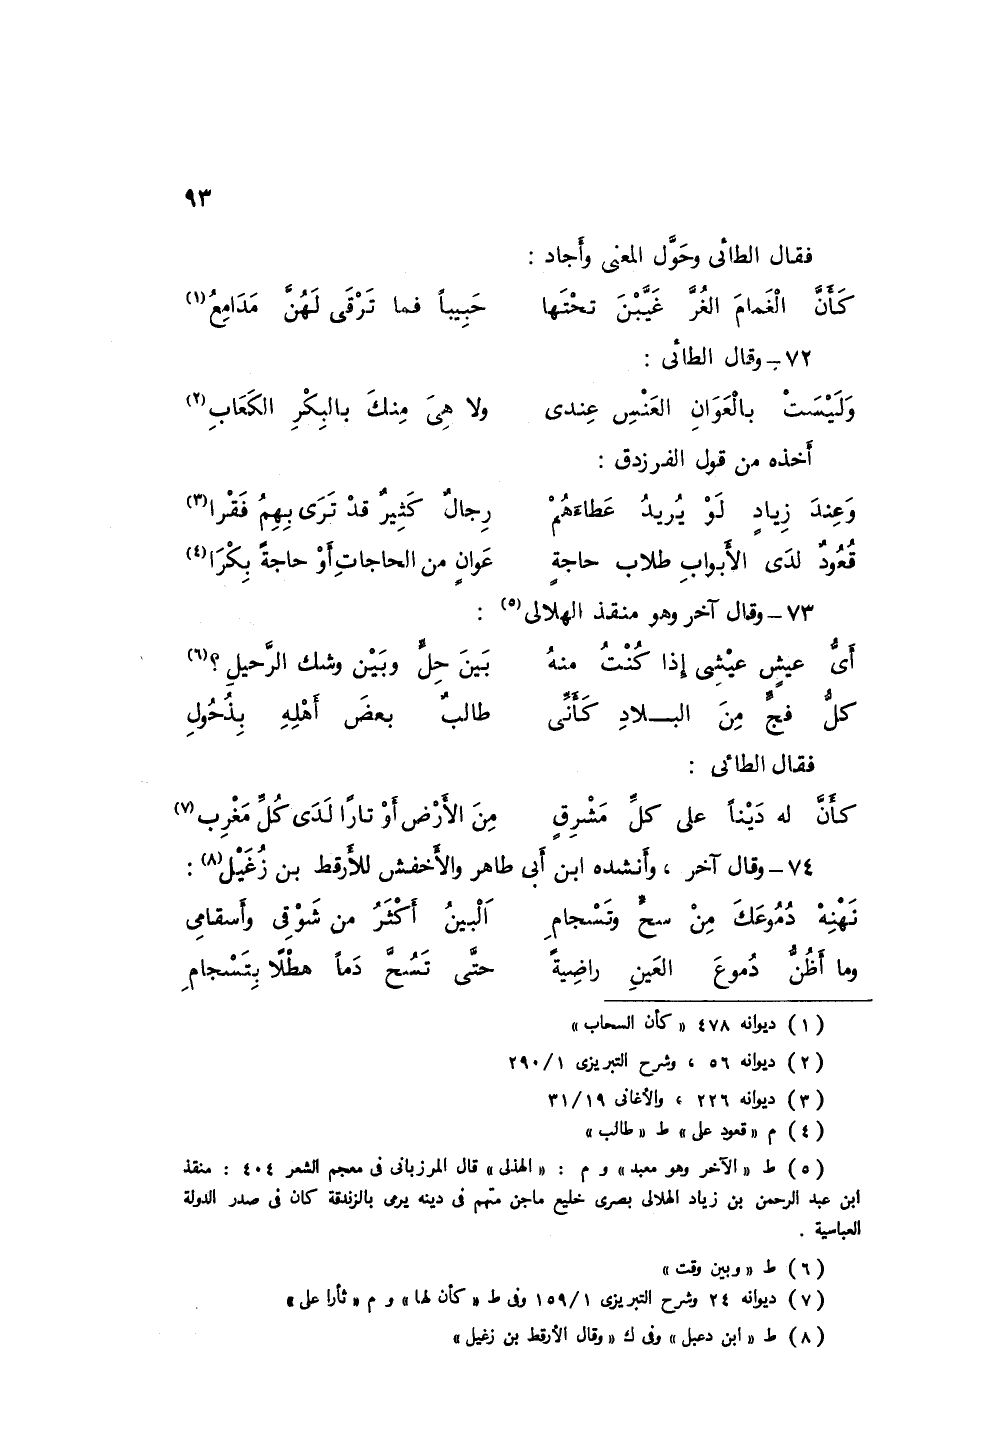 ٩٣
فقال الطائى وحَوَّل المعنى وأَجاد :
كَأَنَّ الْغَمامَ الغُرَّ غَيَّبْنَ تحْتَها حَبِيباً فما تَرْقَى لَهُنَّ مَدَامِعُ(١)
٧٢ – وقال الطائى :
وَلَيْسَتْ بالْعَوَانِ العَنْسِ عِندى ولا هِىَ مِنكَ بالبِكْرِ الكَعَابِ(٢)
أَخذه من قول الفرزدق :
وَعِندَ زِيادٍ لَوْ يُرِيدُ عَطاءَهُمْ رِجالٌ كَثِيرٌ قدْ تَرَى بِهِمُ فَقْرا(٣)
قُعُودٌ لدَى الأَبوابِ طلاب حاجةٍ عَوانٍ من الحاجاتِ أَوْ حاجةً بِكْرَا(٤)
٧٣ – وقال آخر وهو منقذ الهلالى(٥) :
أَىُّ عيشٍ عيْشِى إِذا كُنْتُ منهُ بَينَ حِلٍّ وبَيْن وشك الرَّحيلِ ؟(٦)
كلُّ فجٍّ مِنَ البــلادِ كَأَنَّى طالبٌ بعضَ أَهْلِهِ بِذُحُولِ
فقال الطائى :
كأَنَّ له دَيْناً على كلِّ مَشْرِقٍ مِنَ الأَرْض أَوْ ثارًا لَدَى كُلِّ مَغْرِب(٧)
٧٤ – وقال آخر ، وأَنشده ابن أَبى طاهر والأَخفش للأَرقط بن زُغَيْل(٨) :
نَهْنِهْ دُمُوعَكَ مِنْ سحٍّ وتَسْجامِ اَلْبينُ أَكْثَرُ من شَوْقِى وأَسقامِى
وما أَظُنُّ دُموعَ العَينِ راضِيةً حتَّى تَسُحَّ دَماً هطْلًا بِتَسْجامِ
(١) ديوانه ٤٧٨ « كأن السحاب »
(٢) ديوانه ٥٦ ، وشرح التبريزى ٢٩٠/١
(٣) ديوانه ٢٢٦ ، والأغانى ٣١/١٩
(٤) م « قعود على » ط « طالب »
(٥) ط « الآخر وهو معبد » و م : « الهذلى » قال المرزبانى فى معجم الشعر ٤٠٤ : منقذ
ابن عبد الرحمن بن زياد الهلالى بصرى خليع ماجن متهم فى دينه يرمى بالزندقة كان فى صدر الدولة
العباسية .
(٦) ط « وبين وقت »
(٧) ديوانه ٢٤ وشرح التبريزى ١٥٩/١ وفى ط « كأن لها » و م « ثأرا على »
(٨) ط « ابن دعبل » وفى ك « وقال الأرقط بن زغيل »